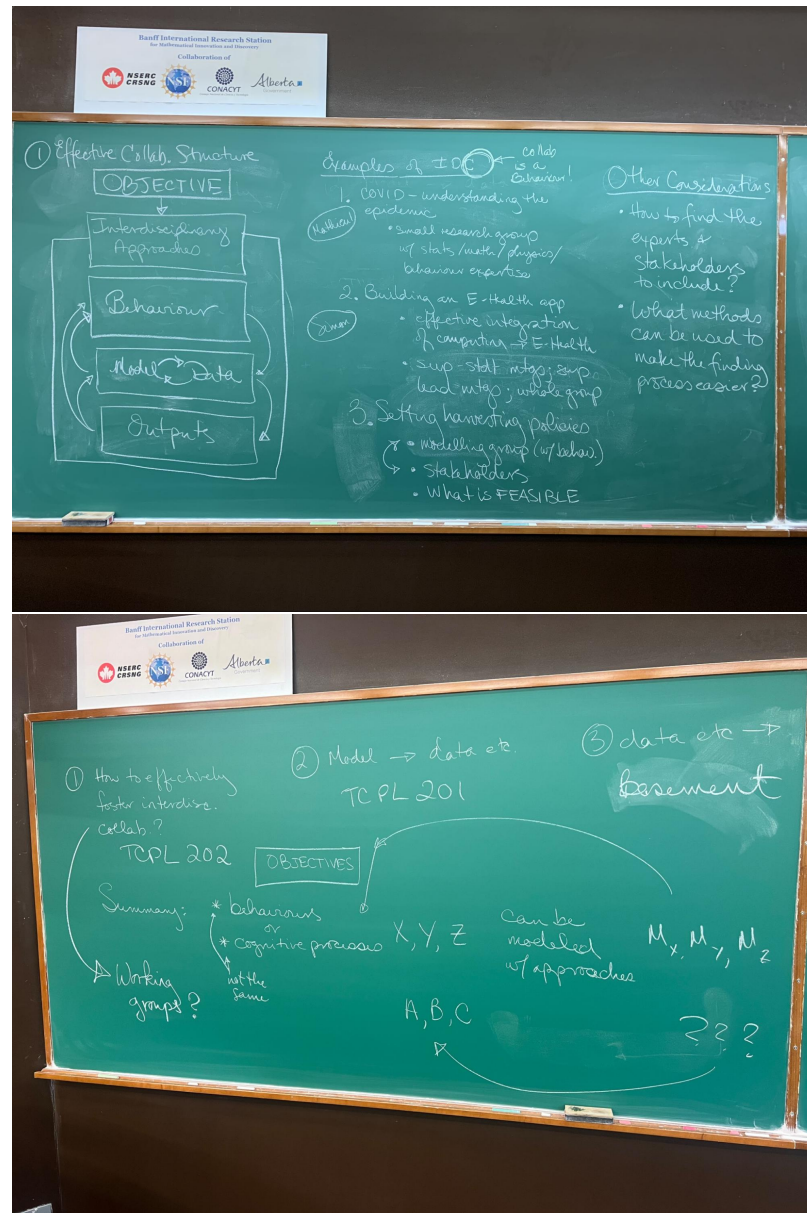 Banff International Research Station
for Mathematical Innovation and Discovery
Collaboration of
NSERC
CRSNG
NSF
CONACYT
Alberta
① Effective Collab. Structure
OBJECTIVE
Interdisciplinary
Approaches
Behaviour
Model Data
Outputs
Examples of IDC
collab
is a
Behaviour!
1. COVID - understanding the
epidemic
• small research group
w/ stats/math/physics/
behaviour expertise
2. Building an E-Health app
Simon
• effective integration
of computing → E-Health
• sup-stdt mtgs; sup.
lead mtgs; whole group
3. Setting harvesting policies
• modelling group (w/ behav.)
• stakeholders
• What is FEASIBLE
Other Considerations
• How to find the
experts &
stakeholders
to include?
• What methods
can be used to
make the finding
process easier?
Banff International Research Station
for Mathematical Innovation and Discovery
Collaboration of
NSERC
CRSNG
NSF
CONACYT
Alberta
① How to effectively
foster interdisc.
collab?
TCPL 202
② Model → data etc.
TCPL 201
③ data etc →
Basement
OBJECTIVES
Summary:
* behaviours
or
* cognitive processes
not the
same
Working
groups?
X, Y, Z
can be
modeled
w/ approaches
M_X, M_Y, M_Z
A, B, C
? ? ?